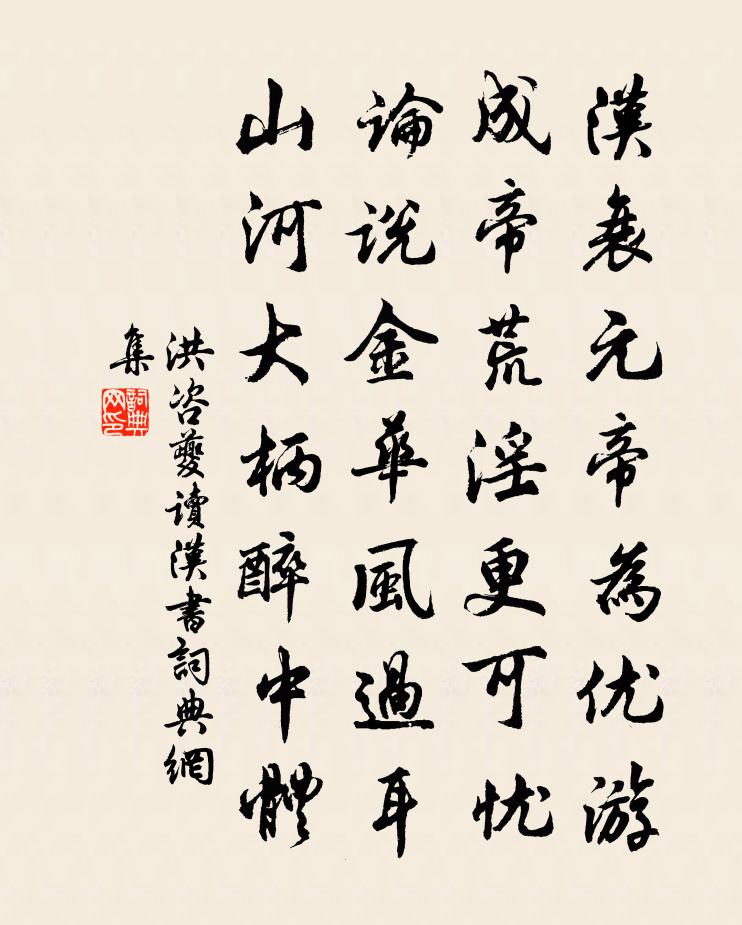 漢衰元帝為优游
成帝荒淫更可忧
論説金華風過耳
山河大柄醉中體
洪咨夔讀漢書詞典網
集
詞典网印